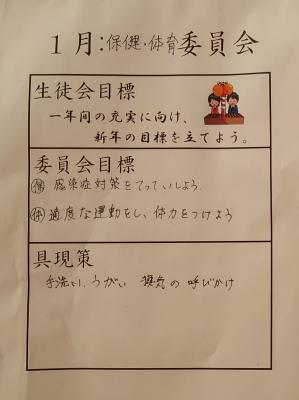 1月:保健·体育委員会
生徒会目標
一年間の充実に向け、
新年の目標を立てよう。
委員会目標
保 感染症対策をてっていしよう.
体 適度な運動をし、体力をつけよう
具現策
手洗い、うがい 換気の呼びかけ